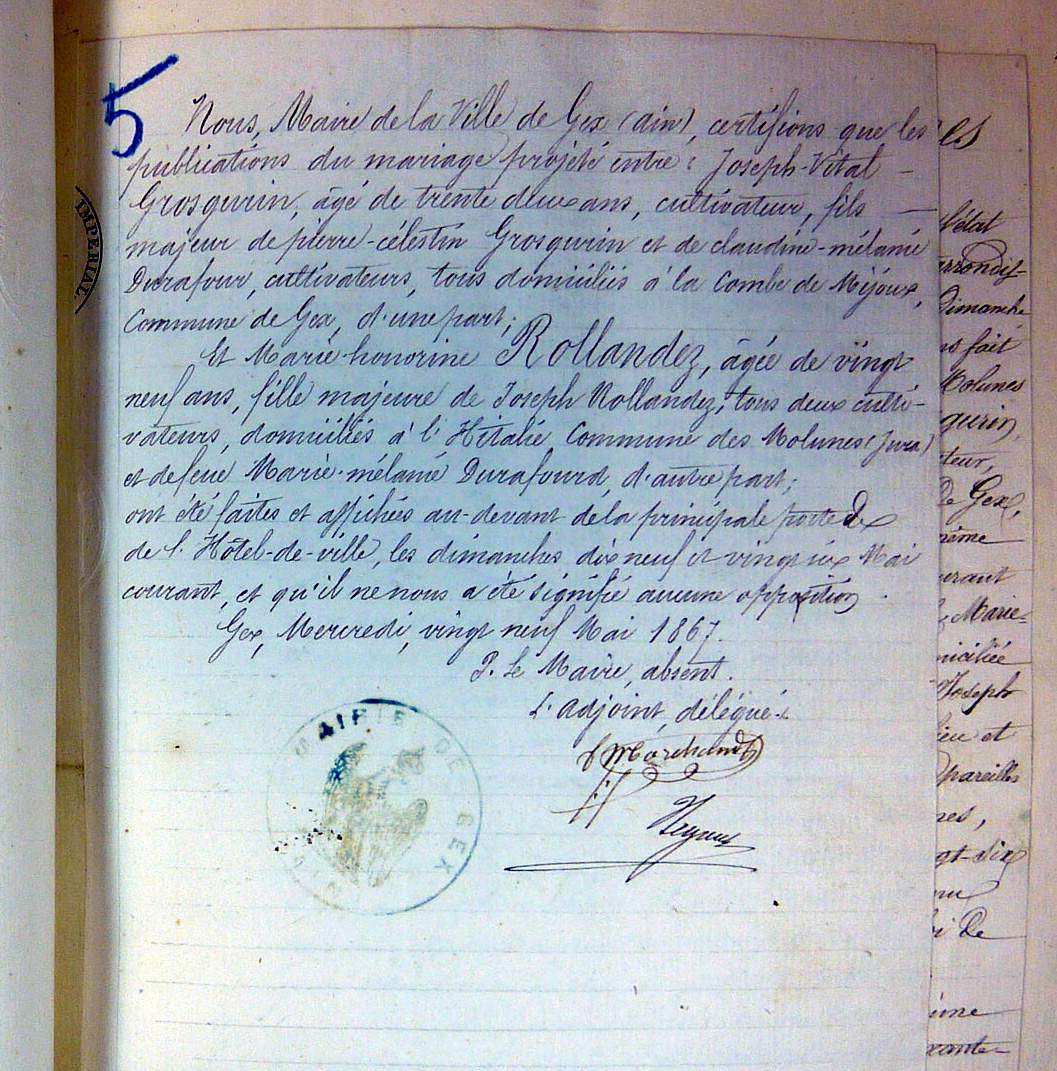 5
Nous, Maire de la Ville de Gex (ain), certifions que les
publications du mariage projété entre : Joseph-Vital –
Grosgurin, âgé de trente deux ans, cultivateur, fils —
majeur de pierre-célestin Grosgurin et de claudine-mélanie
Durafour, cultivateurs, tous domiciliés à la Combe de Mijoux,
Commune de Gex, d'une part ;
Et Marie-honorine Rollandez, âgée de vingt
neuf ans, fille majeure de Joseph Rollandez, tous deux culti-
vateurs, domiciliés à l'Hitalie Commune des Molunes (Jura)
et de feue Marie-mélanie Durafourd, d'autre part ;
ont été faites et affichées au-devant de la principale porte de
de l'Hôtel-de-ville, les dimanches dix neuf et vingt six Mai
courant, et qu'il ne nous a été signifié aucune opposition.
Gex, Mercredi, vingt neuf Mai 1867.
P. Le Maire, absent.
L'adjoint, délégué.
Marchand
MAIRIE DE GEX
IMPERIAL.
es
l'état
arrondis-
Dimanche
fait
Molunes
gurin,
teur,
De Gex,
même
courant
Marie-
miciliée
Joseph
lieu et
pareilles
nes,
gt-dix
De